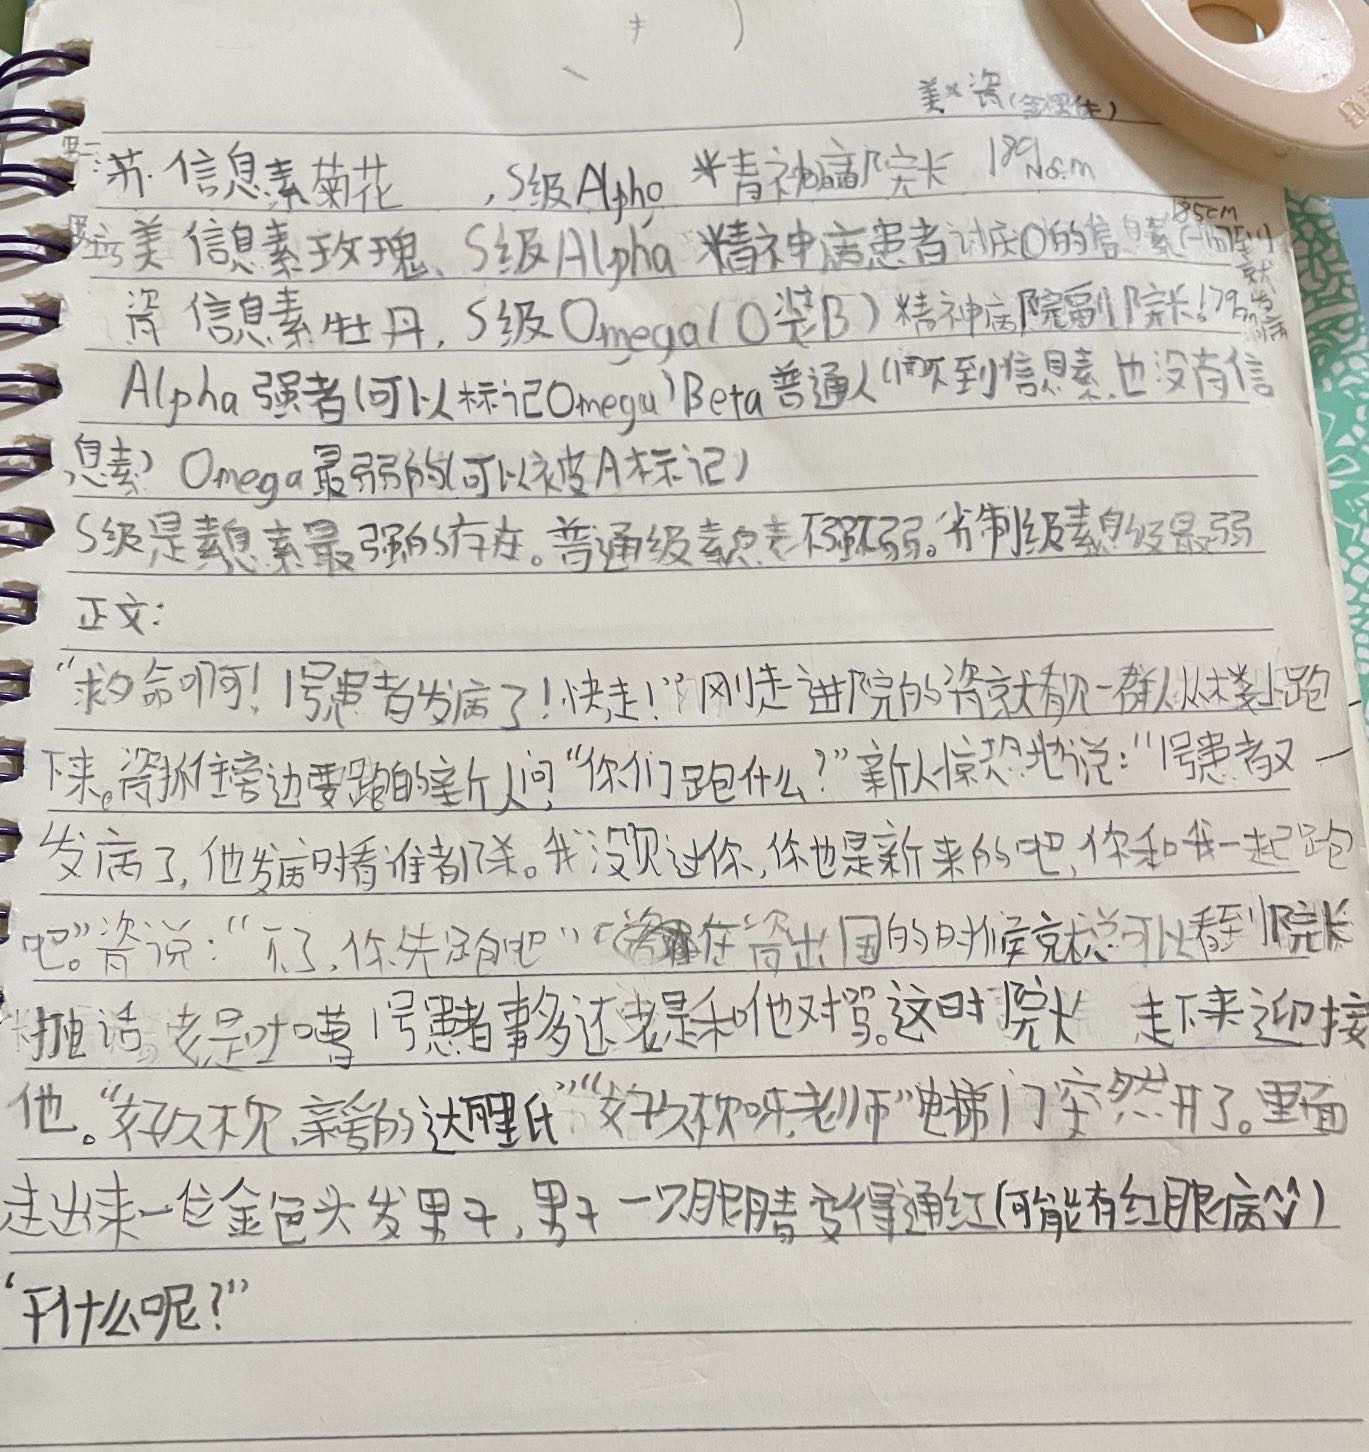 美×瓷
苏 信息素菊花 ,S级Alpha 精神病院长 189
美 信息素玫瑰、S级Alpha 精神病患者 讨厌O的信息素 185cm
瓷 信息素牡丹，S级Omega(O装B) 精神病院副院长179
Alpha 强者(可以标记Omega) Beta普通人(闻不到信息素,也没有信
息素) Omega最弱的(可以被A标记)
S级是素息素最强的存在。普通级素息素不强不弱。劣制级素息级最弱
正文：
“救命啊！1号患者发病了！快走！”刚走进院的瓷就看见一群人从楼上跑
下来。瓷抓住旁边要跑的新人问“你们跑什么？”新人惊恐地说：“1号患者又
发病了，他发病时看谁都杀。我没见过你,你也是新来的吧,你和我一起跑
吧。”瓷说：“不了,你先跑吧”在瓷出国的时候就总可以看到院长
老是吐嘈1号患者事多还老是和他对骂。这时院长 走下来迎接
他。“好久不见,亲爱的达瓦里氏”“好久不见呀,老师”电梯门突然开了。里面
走出来一位金色头发男子,男子一只眼睛变得通红(可能有红眼病^v^)
“干什么呢？”